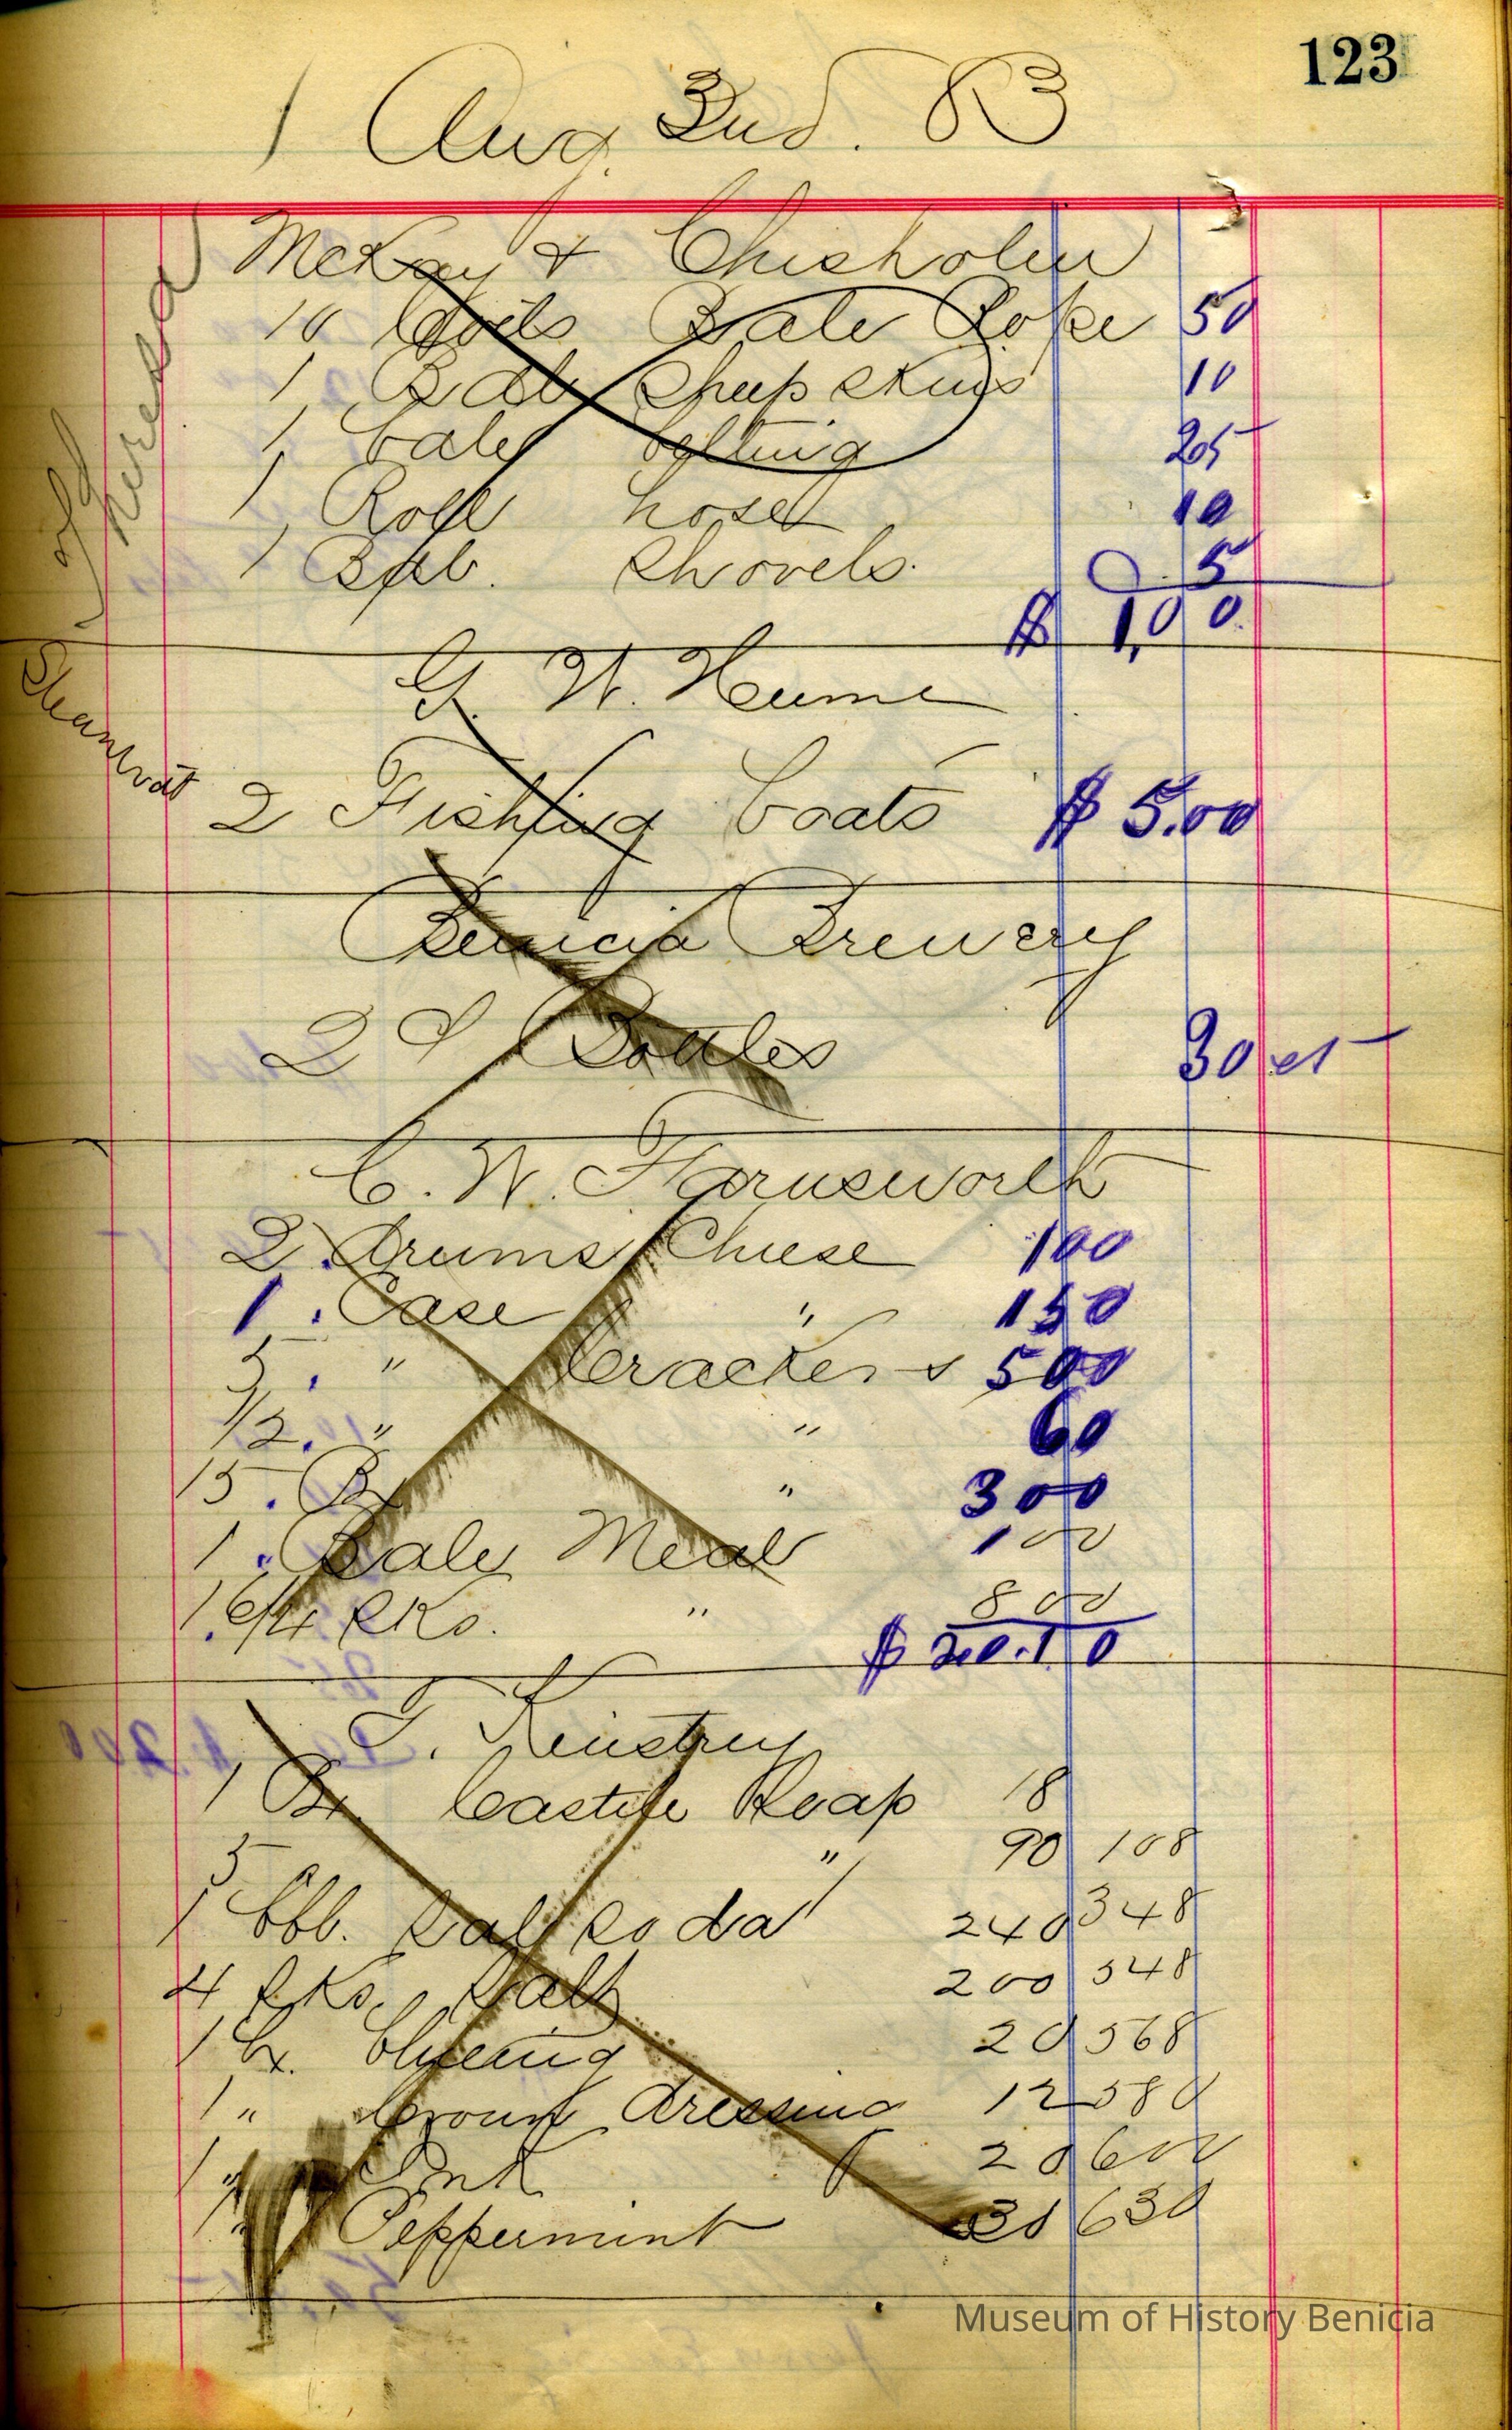 123
1 Aug. 2nd. 83
McKay & Chisholm
10 Coils Bale Rope 50
1 Bdl Sheep Skins 10
1 bale belting 25
1 Roll hose 10
1 Bdl. Shovels. 5
$ 1,00
G. W. Hume
Steamboat
2 Fishing boats $ 5.00
Benicia Brewery
2 S Bottles 30 ct
C. W. Farnsworth
2. Drums Cheese 100
1. Case " 150
5. " Crackers 500
1/2. " " 60
15. Bx " 300
1. Bale Meal 100
1.6/4 sks. " 800
$ 20.10
1 Bx. Castile Soap 18
5 " 90 108
1 bbl. Sal Soda 240 348
4 Sks. Salt 200 548
1 bx. blueing 20 568
1 " Crown dressing 12 580
1 " Ink 20 600
1 " Peppermint 30 630
Museum of History Benicia